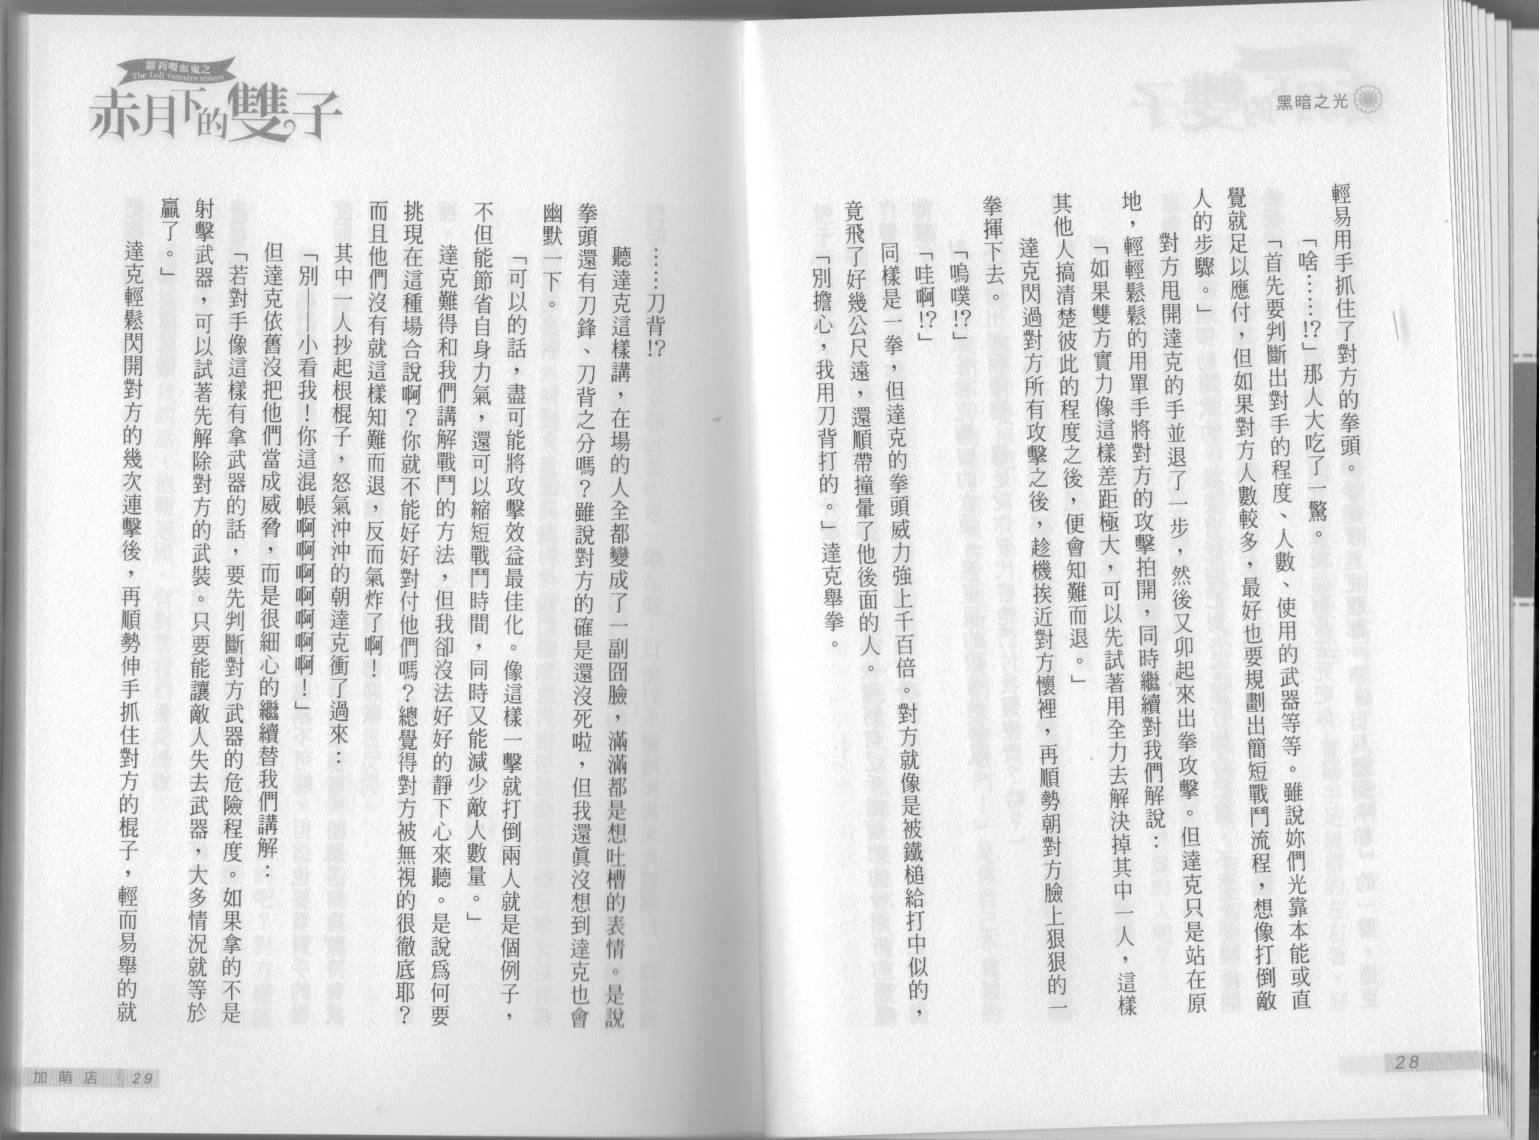 黑暗之光
輕易用手抓住了對方的拳頭。
「啥……!?」那人大吃了一驚。
「首先要判斷出對手的程度、人數、使用的武器等等。雖說妳們光靠本能或直
覺就足以應付，但如果對方人數較多，最好也要規劃出簡短戰鬥流程，想像打倒敵
人的步驟。」
對方甩開達克的手並退了一步，然後又卯起來出拳攻擊。但達克只是站在原
地，輕輕鬆鬆的用單手將對方的攻擊拍開，同時繼續對我們解說：
「如果雙方實力像這樣差距極大，可以先試著用全力去解決掉其中一人，這樣
其他人搞清楚彼此的程度之後，便會知難而退。」
達克閃過對方所有攻擊之後，趁機挨近對方懷裡，再順勢朝對方臉上狠狠的一
拳揮下去。
「嗚噗!?」
「哇啊!?」
同樣是一拳，但達克的拳頭威力強上千百倍。對方就像是被鐵槌給打中似的，
竟飛了好幾公尺遠，還順帶撞暈了他後面的人。
「別擔心，我用刀背打的。」達克舉拳。
28
蘿莉吸血鬼之
The Loli vampire sisters
赤月下的雙子
……刀背!?
聽達克這樣講，在場的人全都變成了一副囧臉，滿滿都是想吐槽的表情。是說
拳頭還有刀鋒、刀背之分嗎？雖說對方的確是還沒死啦，但我還真沒想到達克也會
幽默一下。
「可以的話，盡可能將攻擊效益最佳化。像這樣一擊就打倒兩人就是個例子，
不但能節省自身力氣，還可以縮短戰鬥時間，同時又能減少敵人數量。」
達克難得和我們講解戰鬥的方法，但我卻沒法好好的靜下心來聽。是說為何要
挑現在這種場合說啊？你就不能好好對付他們嗎？總覺得對方被無視的很徹底耶？
而且他們沒有就這樣知難而退，反而氣炸了啊！
其中一人抄起根棍子，怒氣沖沖的朝達克衝了過來：
「別──小看我！你這混帳啊啊啊啊啊啊啊！」
但達克依舊沒把他們當成威脅，而是很細心的繼續替我們講解：
「若對手像這樣有拿武器的話，要先判斷對方武器的危險程度。如果拿的不是
射擊武器，可以試著先解除對方的武裝。只要能讓敵人失去武器，大多情況就等於
贏了。」
達克輕鬆閃開對方的幾次連擊後，再順勢伸手抓住對方的棍子，輕而易舉的就
加萌店 29